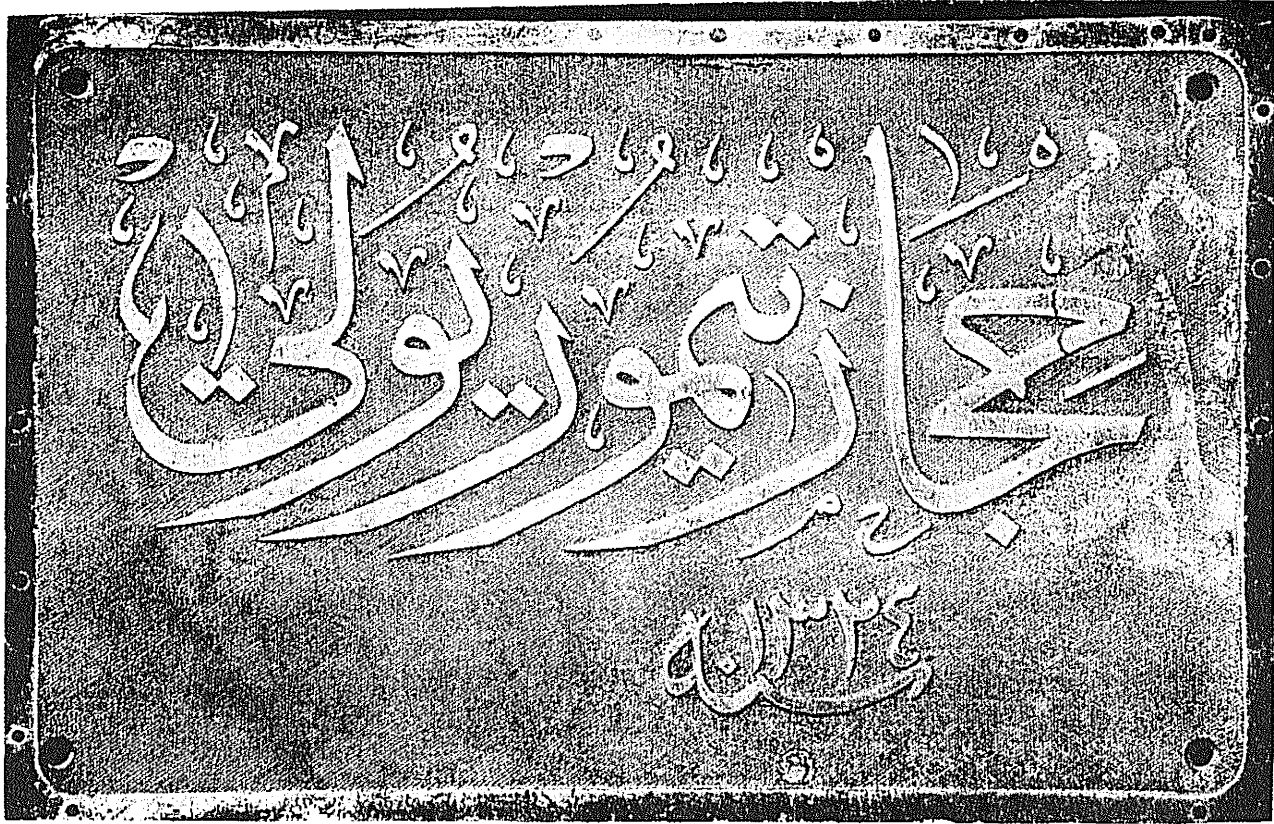 حجاز تيمور يولي
سنه ١٣٢٤